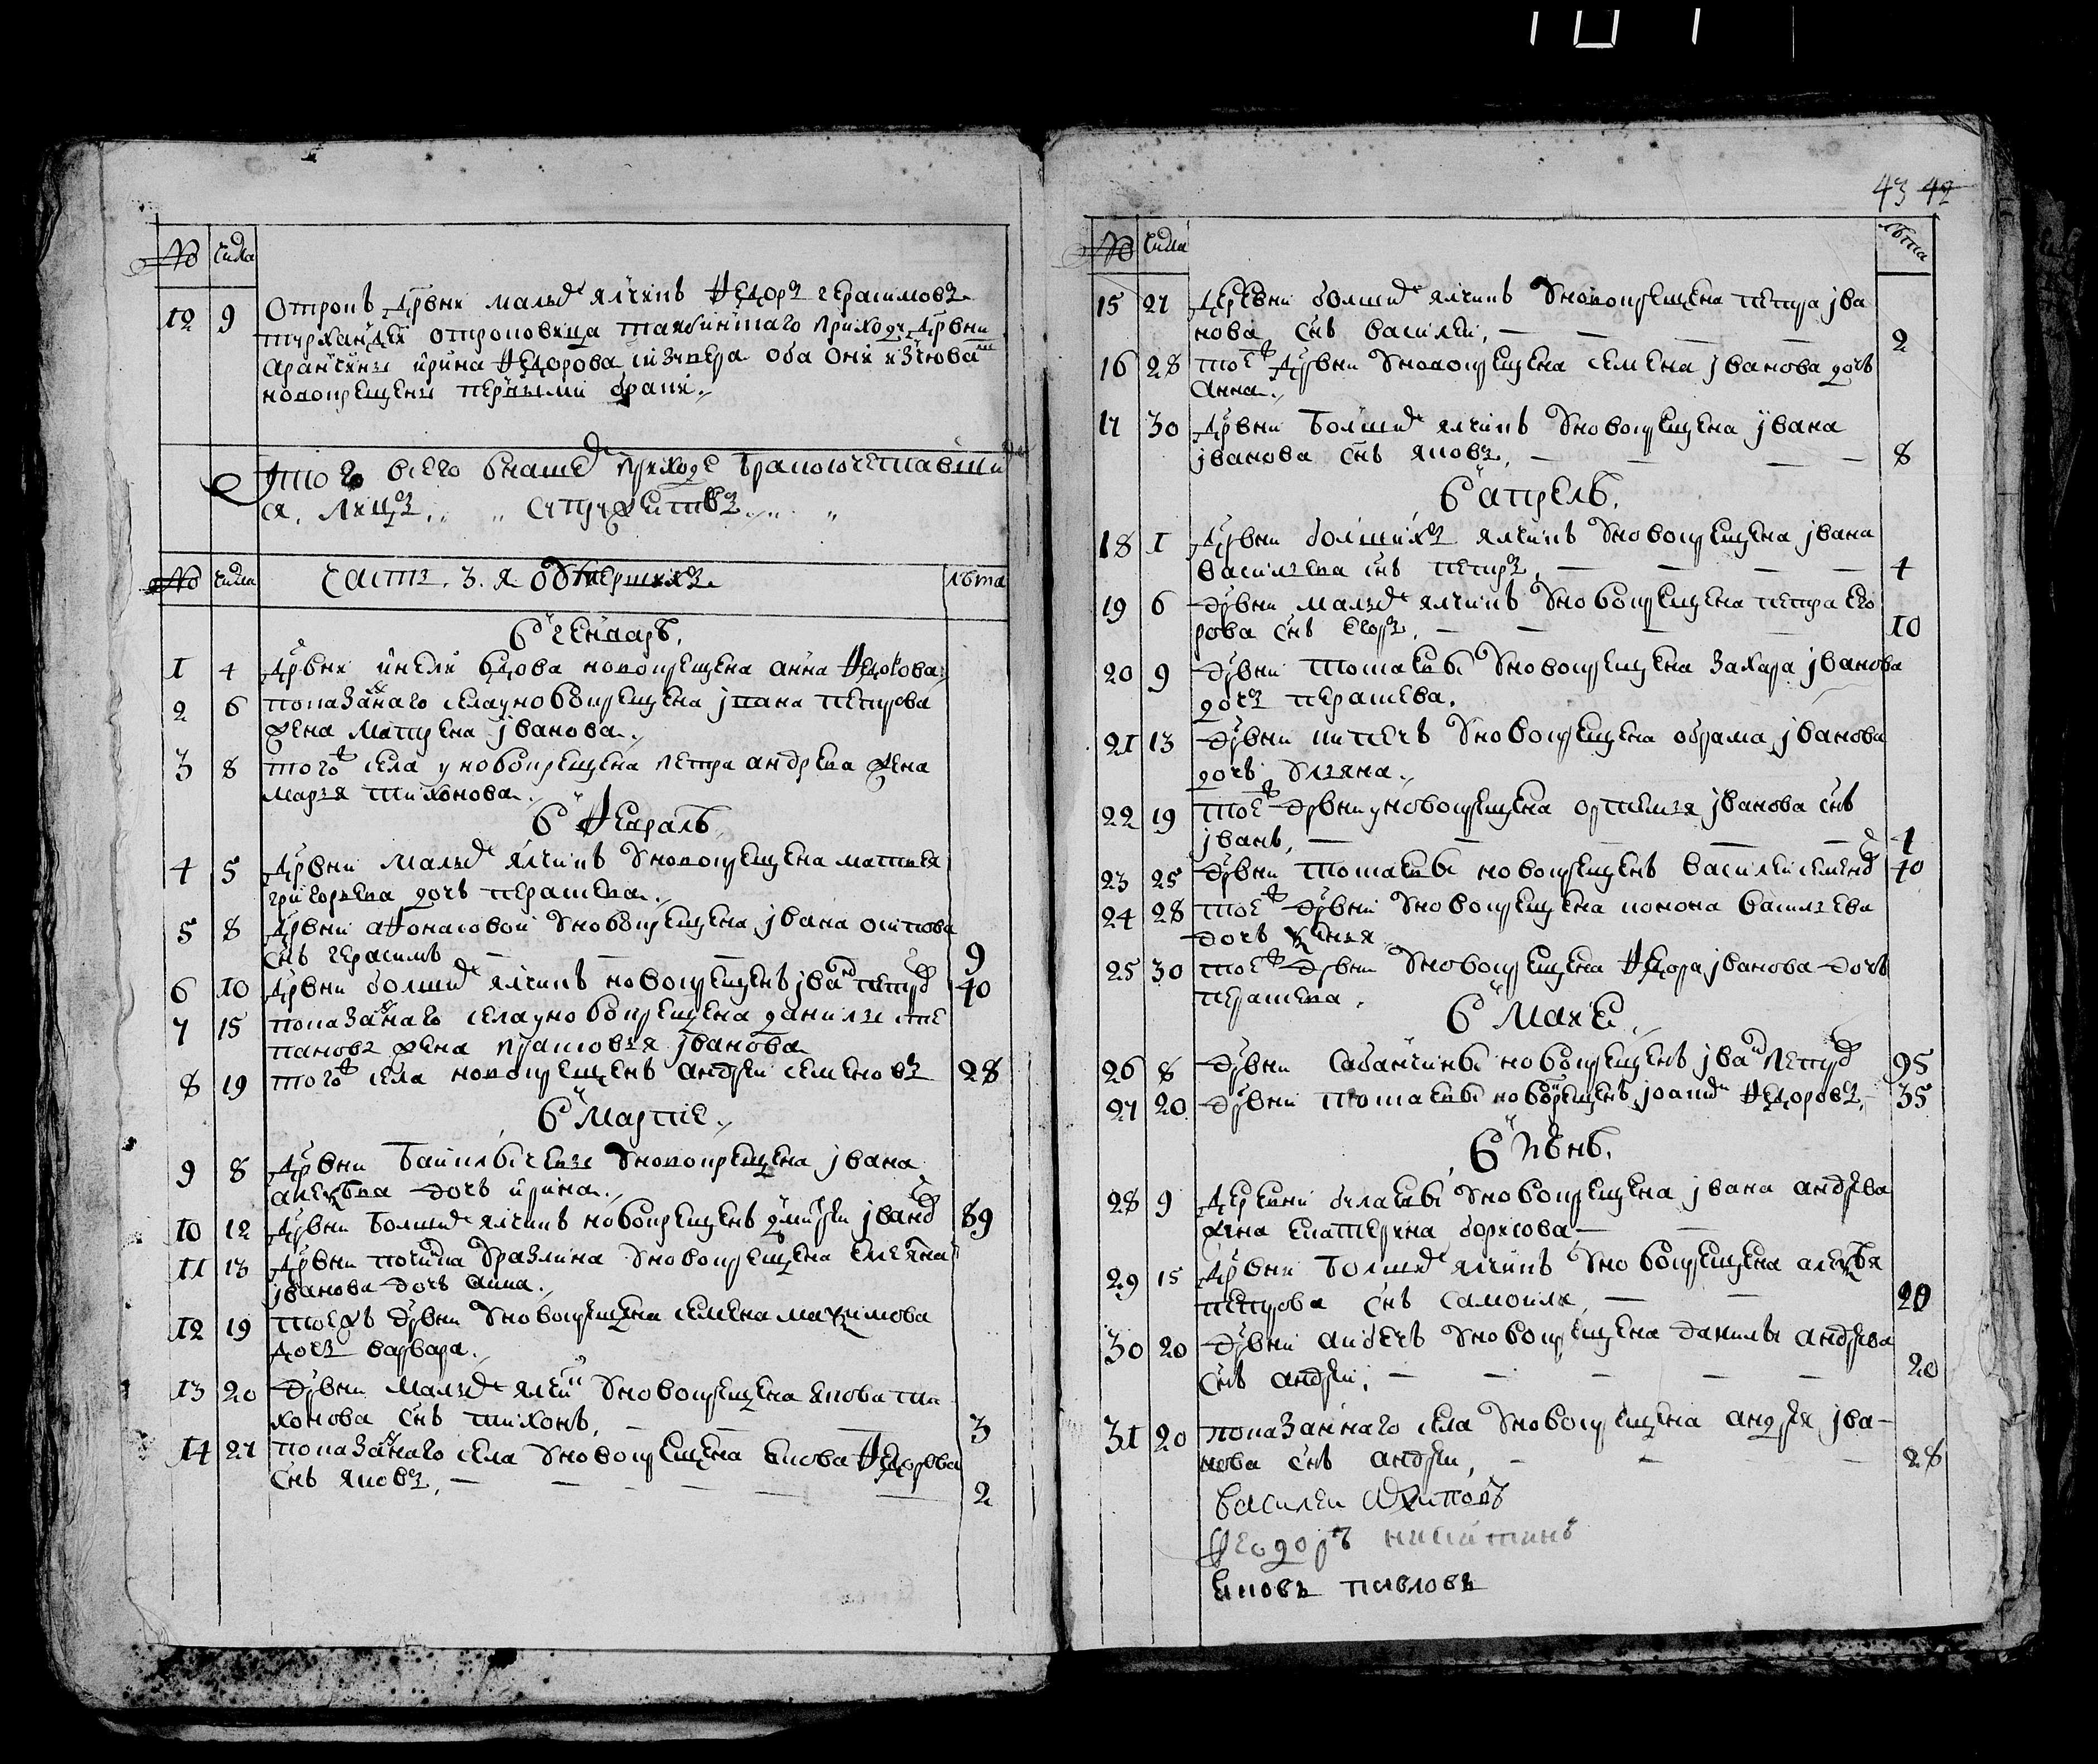 43 42
№ числа
12 9 Отрокъ дрвни малых ялчикъ Федоръ герасимовъ
отроковица приходу дрвни
ирина Федорова оба они
новокрещены первыми браки
Итого всего внашем приходе бракосочетавши
ся лицъ супружествъ
№ числа часть 3 я обумершихъ лѣта
В генваръ
1 4 Дрвни вдова новокрещена анна Федотова
2 6 показаннаго села у новокрещена ивана петрова
жена матрена иванова
3 8 тогож села у новокрещена петра андрева жена
марья тихонова
В Февраль
4 5 Дрвни малых ялчикъ у новокрещена матвея
григорьева дочь перасшева
5 8 Дрвни афонасовой у новокрещена ивана осипова
снъ герасимъ 9
6 10 Дрвни болших ялчикъ новокрещенъ иван петров 40
7 15 показаннаго села у новокрещена данилы сте
панова жена прасковья иванова
8 19 тогож села новокрещенъ андреи семеновъ 28
В Марте
9 8 Дрвни у новокрещена ивана
алексѣва дочь ирина
10 12 Дрвни Болших ялчикъ новокрещенъ дмитреи иванов 89
11 13 Дрвни починка у новокрещена семена
иванова дочь анна
12 19 тоежъ дрвни у новокрещена семена маѯимова
дочь варвара
13 20 дрвни малых ялчик у новокрещена якова ти
хонова снъ тихонъ 3
14 27 показаннаго села у новокрещена якова Федорова
снъ яковъ 2
№ числа лѣта
15 27 деревни болших ялчикъ у новокрещена петра ива
нова снъ василеи 2
16 28 тоеж дрвни у новокрещена семена иванова дочь
анна
17 30 Дрвни Болших ялчикъ у новокрещена ивана
иванова снъ яковъ 8
В апрель
18 1 Дрвни болшихъ ялчикъ у новокрещена ивана
васильева снъ петръ 4
19 6 дрвни малых ялчикъ у новокрещена петра его
рова снъ егоръ 10
20 9 дрвни тошаевы у новокрещена захара иванова
дочь перасшева
21 13 дрвни у новокрещена обрама иванова
дочь ульяна
22 19 тоеж дрвни у новокрещена ортемья иванова снъ
иванъ 4
23 25 дрвни тошаевы новокрещенъ василеи семенов 40
24 28 тоеж дрвни у новокрещена конона васильева
дочь
25 30 тоеж дрвни у новокрещена Федора иванова дочь
перасшева
В Маие
26 8 дрвни новокрещенъ иван петров 95
27 20 дрвни тошаевы новокрещенъ Федоровъ 35
В июнь
28 9 деревни у новокрещена ивана андрева
жена екатерина борисова
29 15 Дрвни Болших ялчикъ у новокрещена алеѯѣя
петрова снъ самоила 20
30 20 дрвни у новокрещена данилы андрева
снъ андреи 20
31 20 показаннаго села у новокрещена андрея ива
нова снъ андреи 28
Василеи
Ѳеодоръ никитинъ
яковъ павловъ